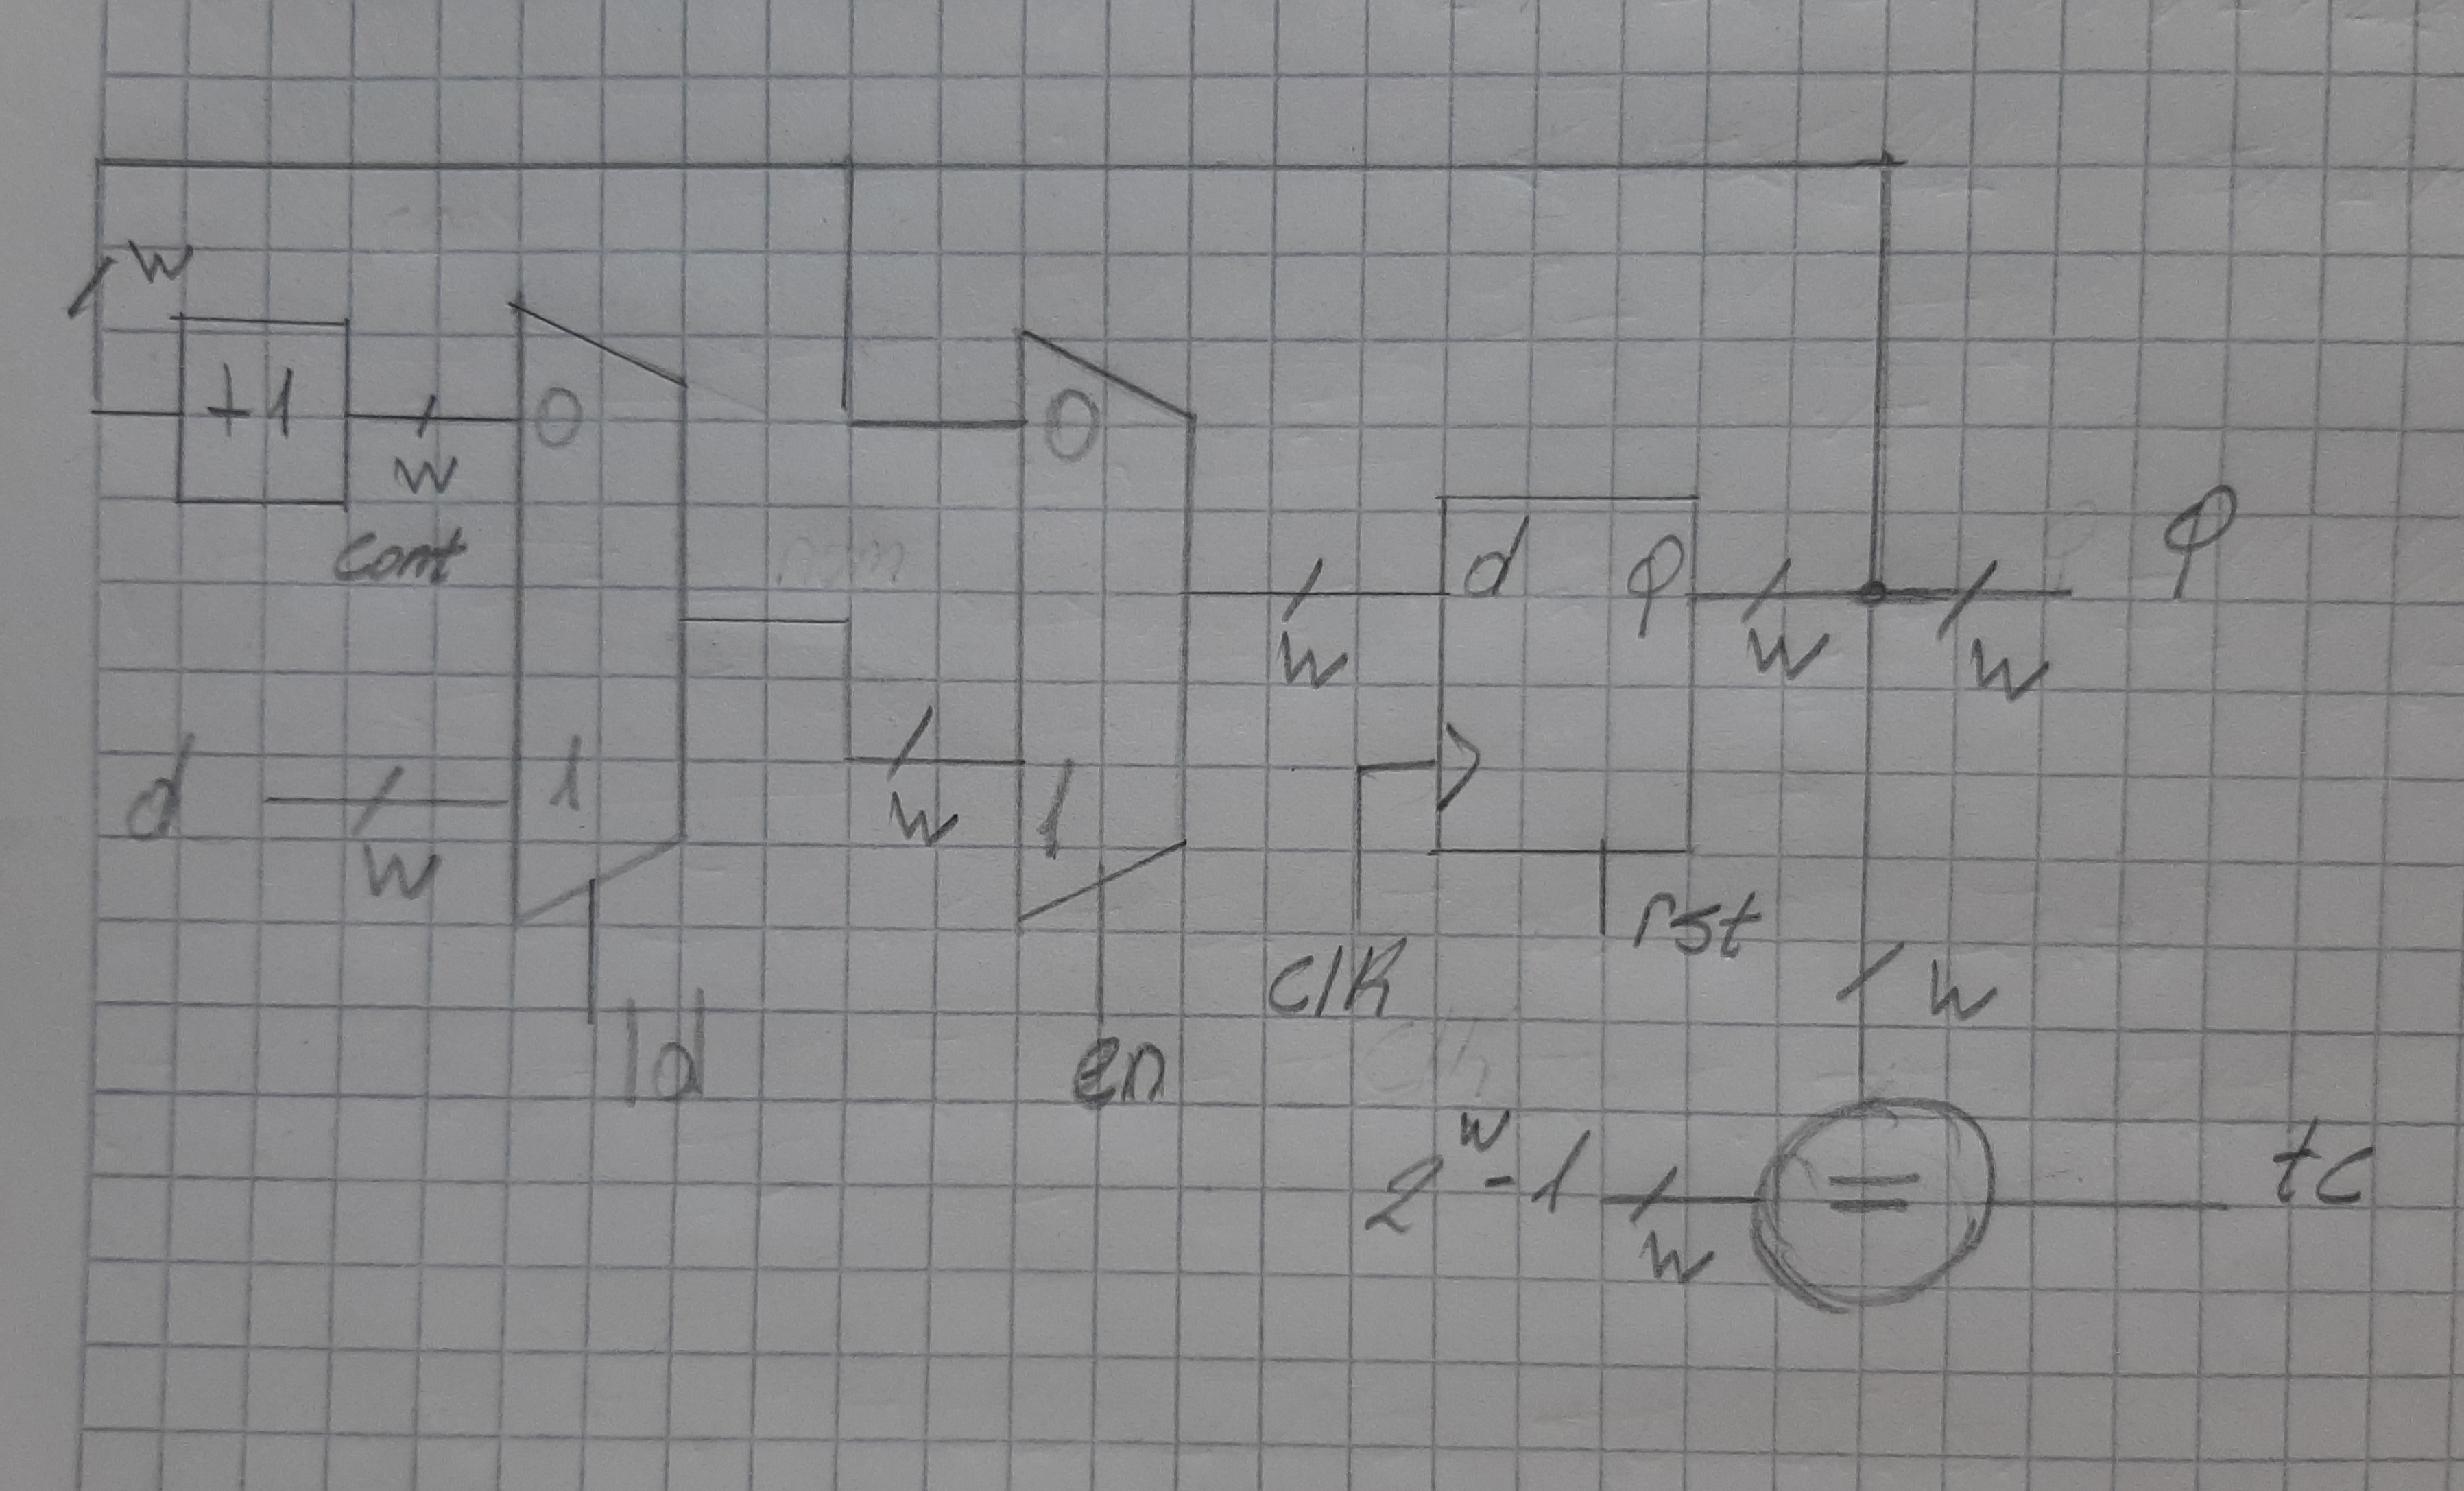 w
+1
w
cont
0
d
w
1
ld
0
w
1
en
w
d
q
clk
rst
w
w
q
w
2^w-1
w
=
tc